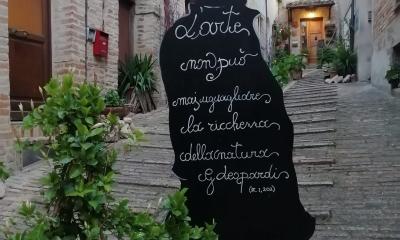 L'arte
non può
mai uguagliare
la ricchezza
della natura
G. Leopardi
(Z. 1, 202)